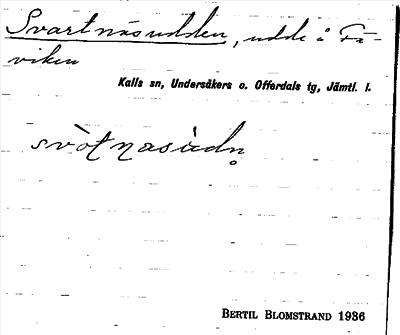 Svartnäsudden, udde å Få-
viken
Kalls sn, Undersåkers o. Offerdals tg, Jämtl. l.
svòtnasùdn̥
BERTIL BLOMSTRAND 1936